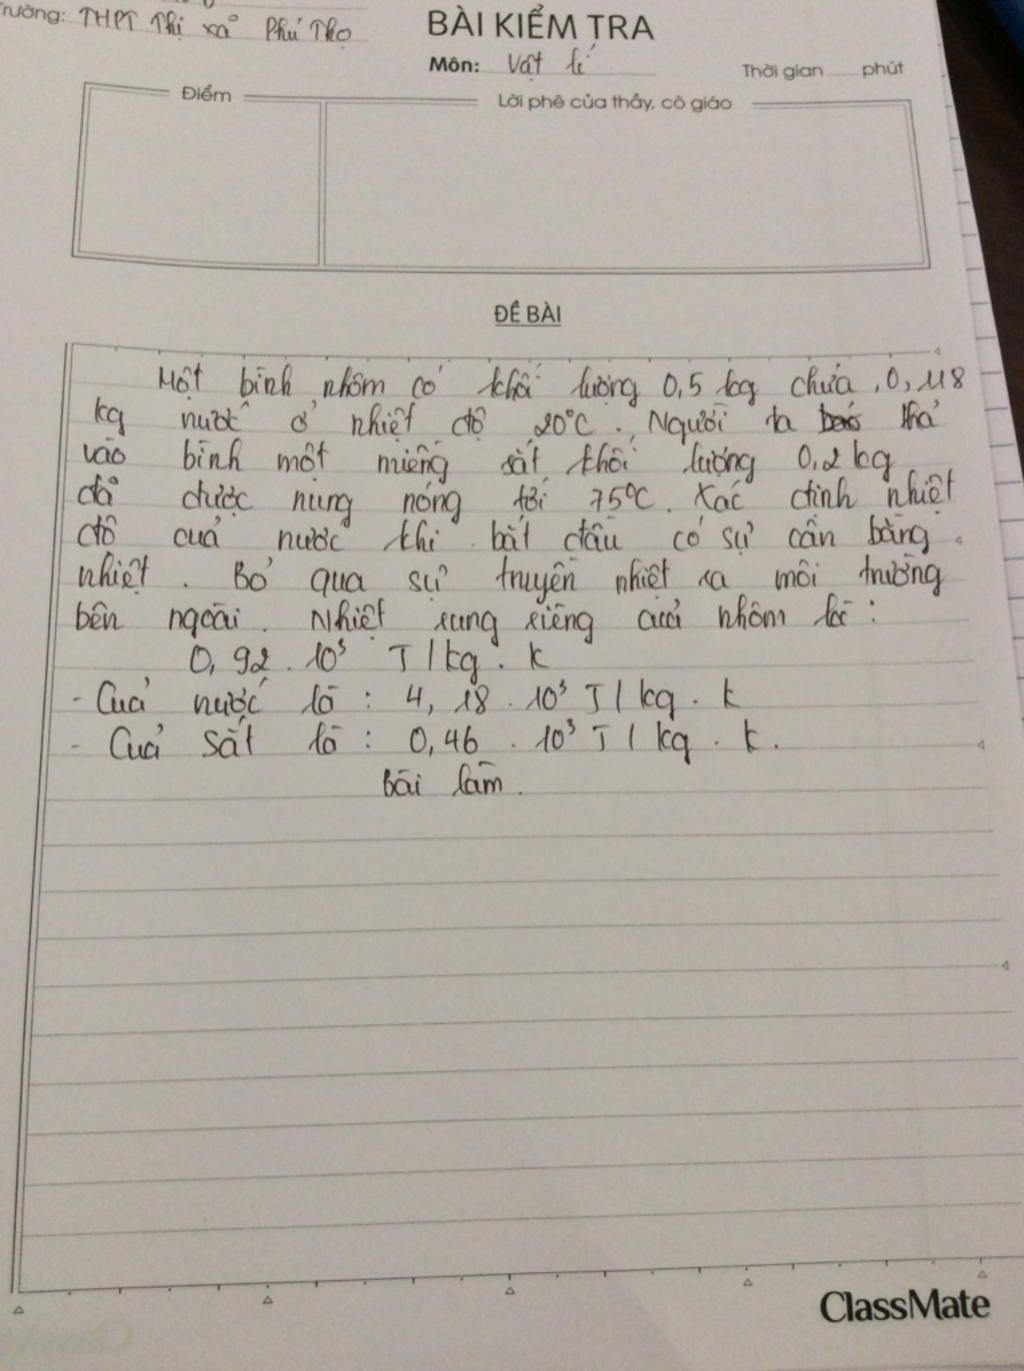 Trường: THPT Thị xã Phú Thọ
BÀI KIỂM TRA
Môn: Vật lí
Thời gian phút
Điểm
Lời phê của thầy, cô giáo
ĐỀ BÀI
Một bình nhôm có khối lượng 0,5 kg chứa 0,118
kg nước ở nhiệt độ 20°C. Người ta thả
vào bình một miếng sắt khối lượng 0,2 kg
đã được nung nóng tới 75°C. Xác định nhiệt
độ của nước khi bắt đầu có sự cân bằng
nhiệt. Bỏ qua sự truyền nhiệt ra môi trường
bên ngoài. Nhiệt rung riêng của nhôm là:
0,92.10³ J/kg.k
- Của nước là: 4,18.10³ J/kg.k
- Của sắt là: 0,46.10³ J/kg.k.
bài làm.
ClassMate